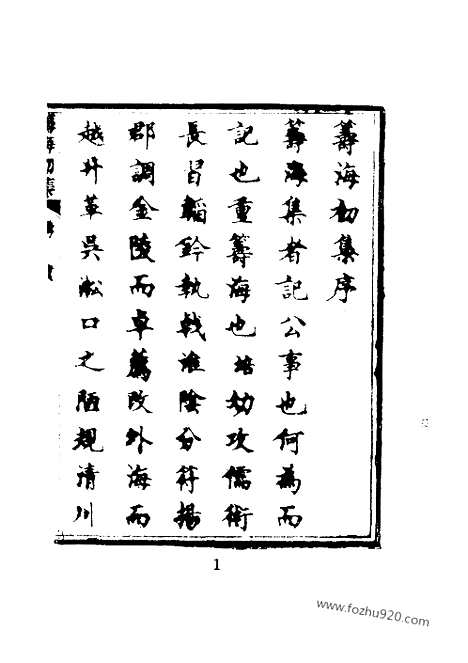 籌海初集序
籌海集者記公事也何為而
記也重籌海也培幼攻儒術
長習韜鈐執戟淮陰分符揚
郡調金陵而卓薦改外海而
越升革吳淞口之陋規清川
籌海初集
1
www.fozhu920.com